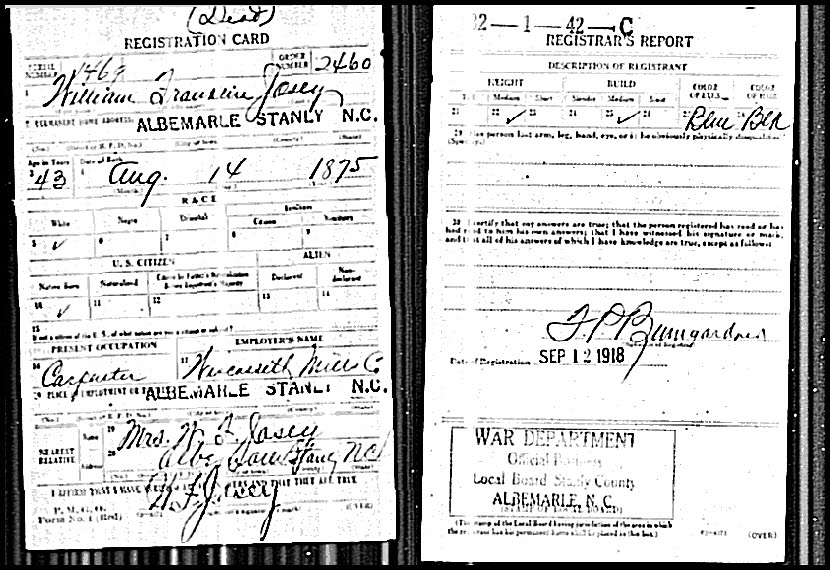 (Dead)
REGISTRATION CARD
SERIAL NUMBER 1469 ORDER NUMBER 2460
1 William Franklin Josey
2 PERMANENT HOME ADDRESS ALBEMARLE STANLY N.C.
(No.) (City or town) (County) (State)
Age in Years Date of Birth
3 43 4 Aug. 14 1875
RACE
White Negro Oriental Indian
Citizen Noncitizen
5 ✓ 6 7 8 9
U. S. CITIZEN ALIEN
Native Born Naturalized Citizen by Father's Naturalization Before Registrant's Majority Declarant Non-declarant
10 ✓ 11 12 13 14
15
If not a citizen of the U. S., of what nation are you a citizen or subject?
PRESENT OCCUPATION EMPLOYER'S NAME
16 Carpenter 17 Wiscassett Mills Co
18 PLACE OF EMPLOYMENT OR ALBEMARLE STANLY N.C.
(No.) (County) (State)
NEAREST RELATIVE Name 19 Mrs. W. F. Josey
Address 20 Albe Stanly N.C.
I AFFIRM THAT I HAVE AND THAT THEY ARE TRUE
W F Josey
P. M. G. O.
Form No. 1 (Red) (OVER)
32—1—42—C
REGISTRAR'S REPORT
DESCRIPTION OF REGISTRANT
HEIGHT BUILD COLOR OF EYES COLOR OF HAIR
Tall Medium Short Slender Medium Stout
21 22 ✓ 23 24 25 ✓ 26 27 Blue 28 Blk
29 Has person lost arm, leg, hand, eye, or is he obviously physically disqualified?
(Specify)
30 I certify that my answers are true; that the person registered has read or has
had read to him his own answers; that I have witnessed his signature or mark,
and that all of his answers of which I have knowledge are true, except as follows:
F. P. Bumgardner
Date of Registration SEP 12 1918
WAR DEPARTMENT
Official Business
Local Board Stanly County
ALBEMARLE, N. C.
(STAMP OF LOCAL BOARD)
(The stamp of the Local Board having jurisdiction of the area in which
the registrant has his permanent home shall be placed in this box.)
(OVER)